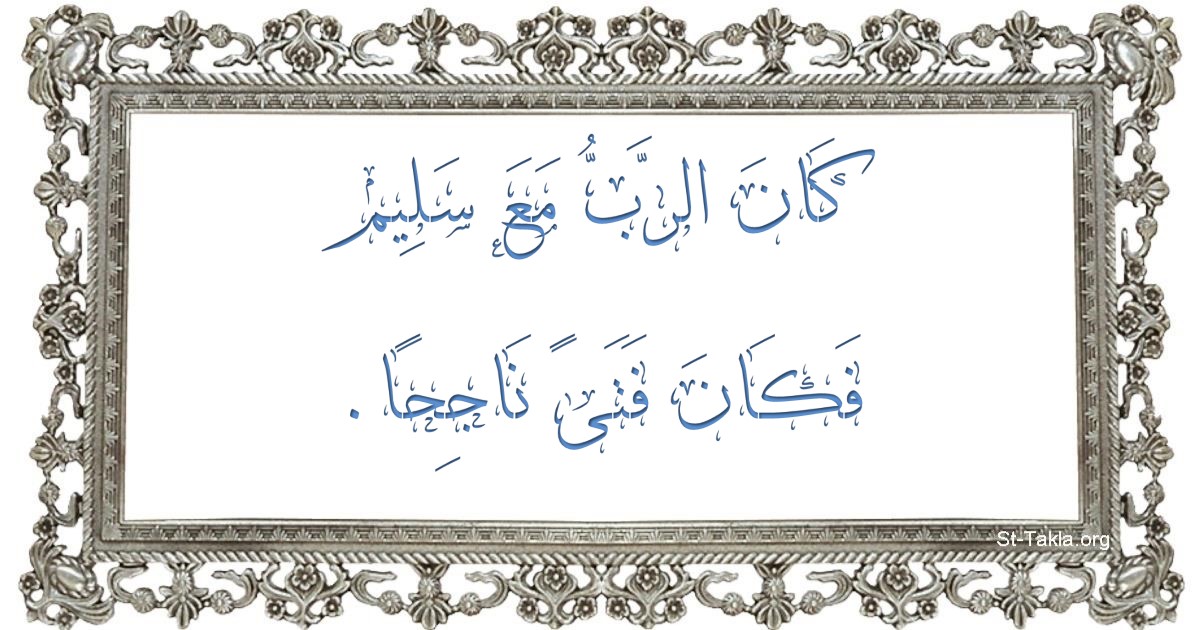 كَانَ الرَّبُّ مَعَ سَلِيمْ
فَكَانَ فَتَىً نَاجِحًا .
St-Takla.org